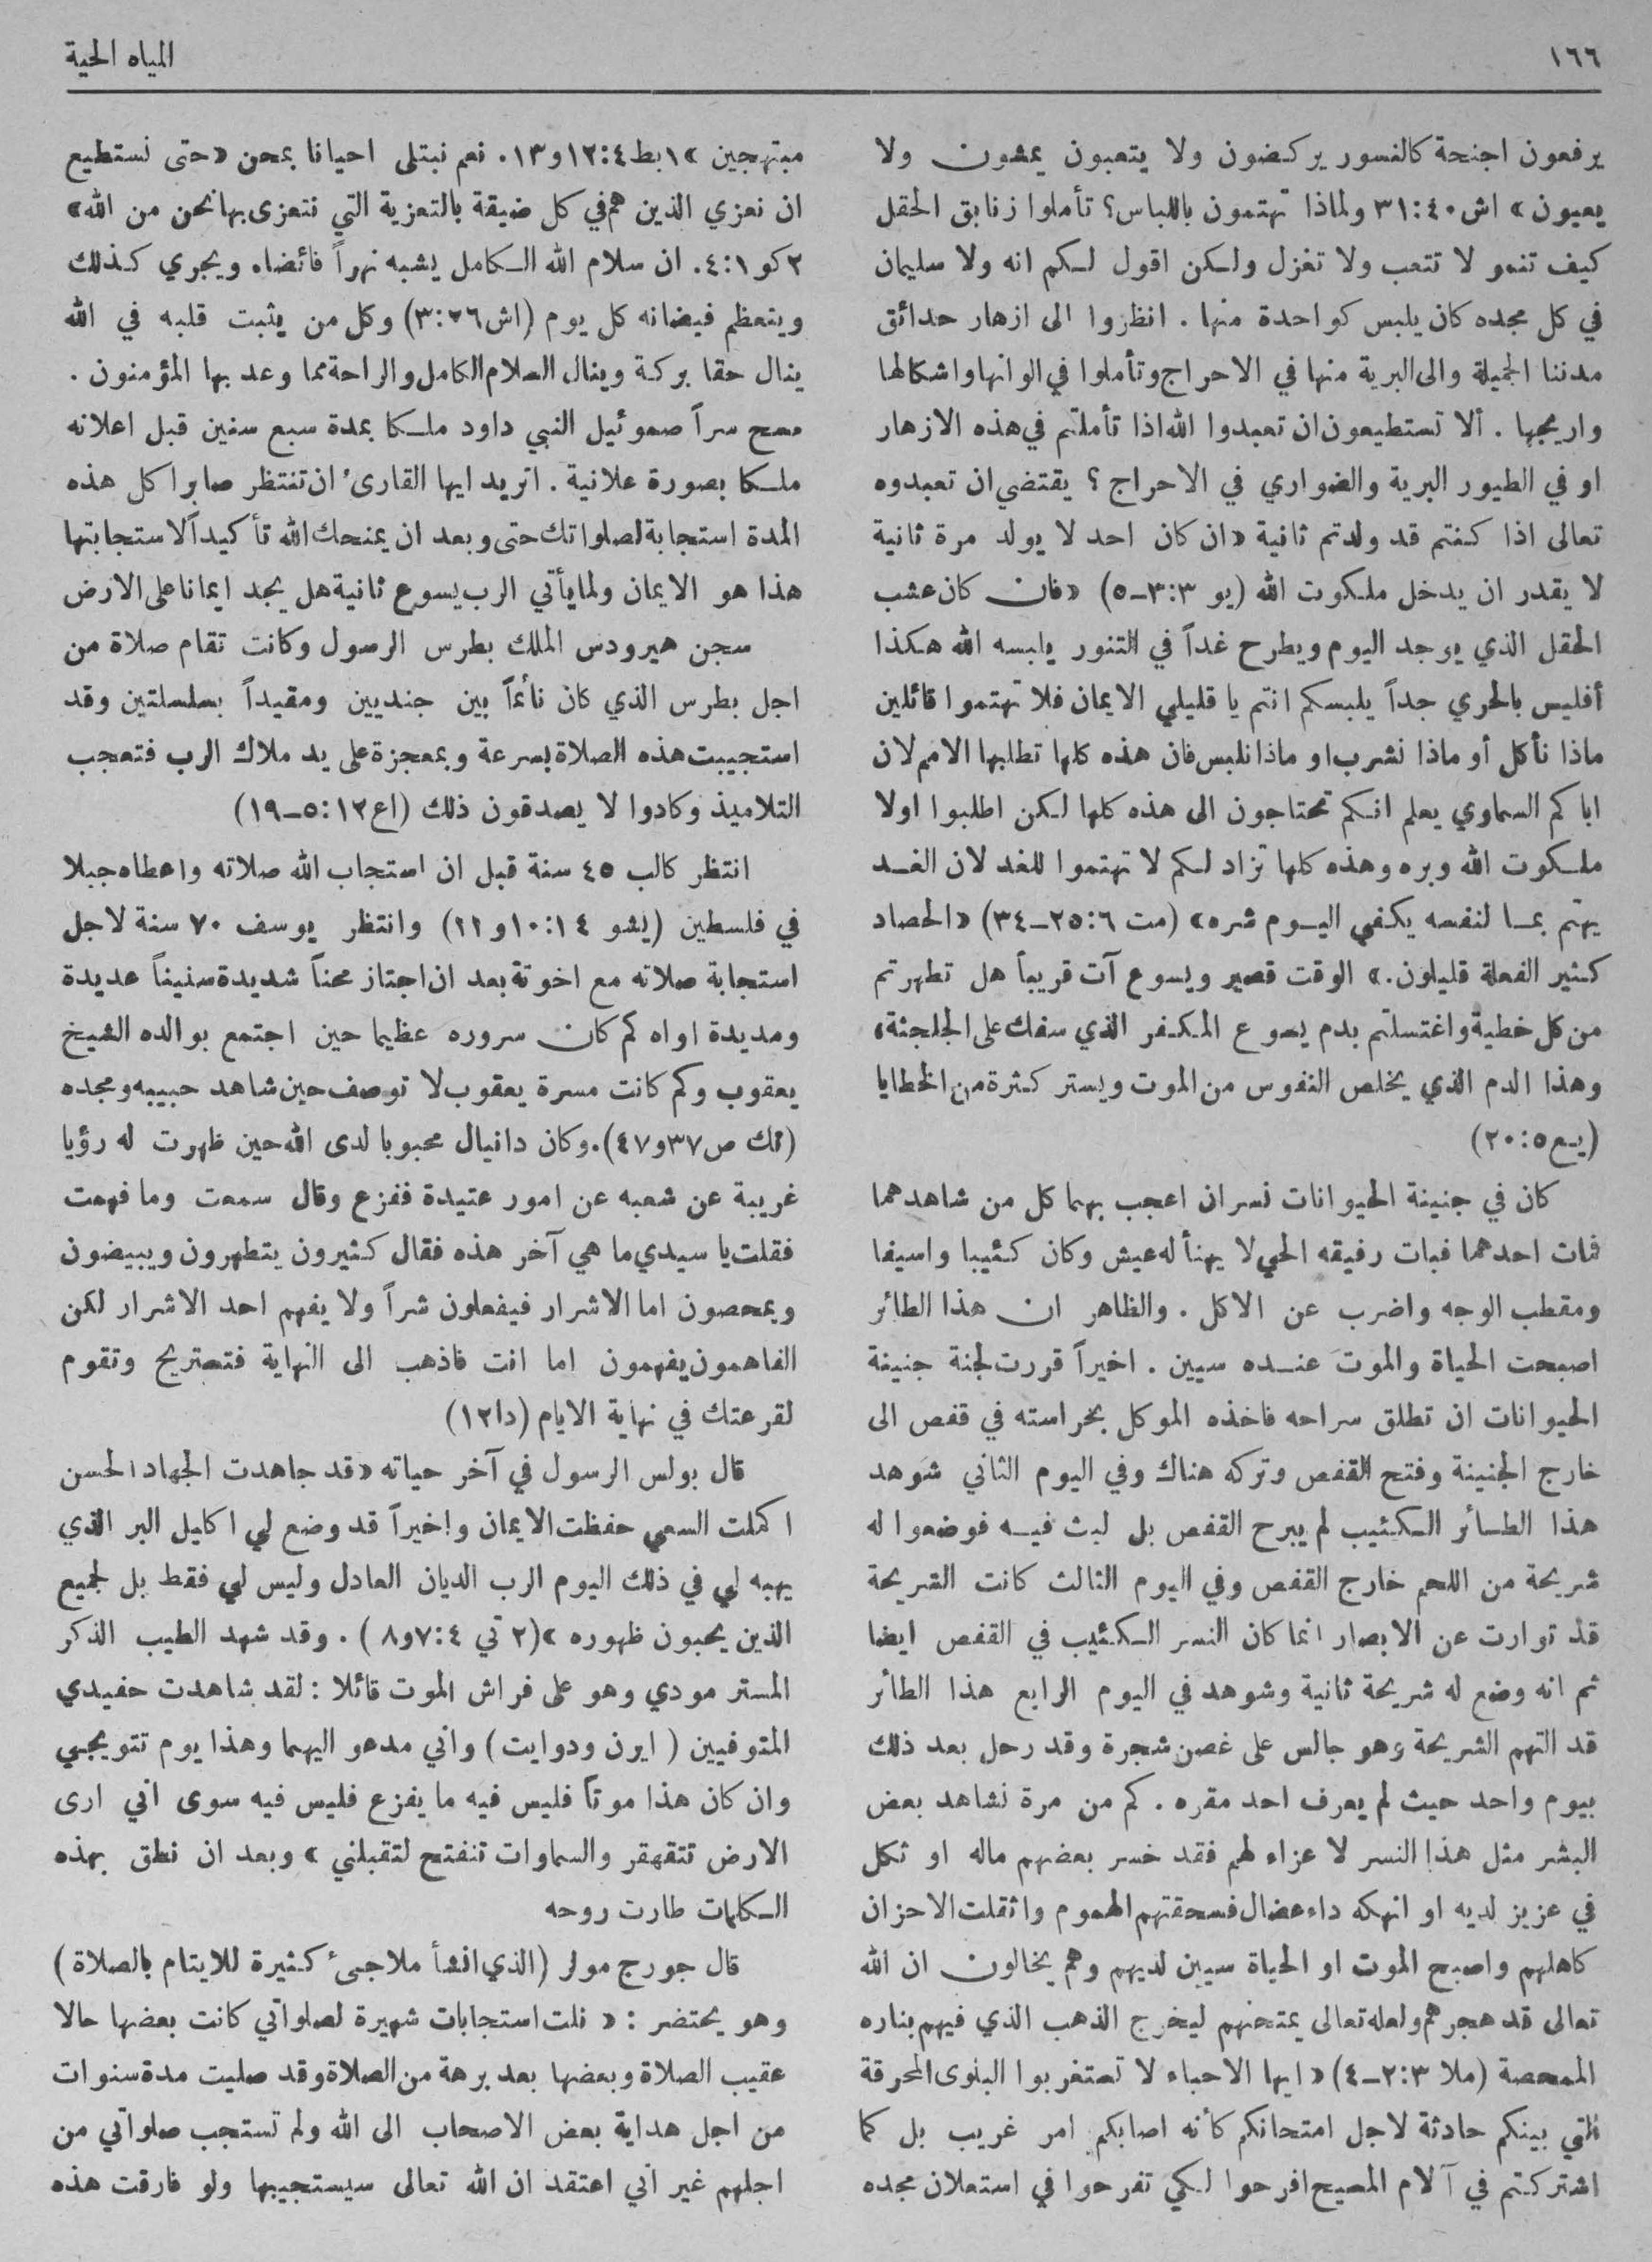 ١٦٦
المياه الحية
يرفعون اجنحة كالنسور يركضون ولا يتعبون يمشون ولا
يعيون» اش٣١:٤٠ ولماذا تهتمون باللباس؟ تأملوا زنابق الحقل
كيف تنمو لا تتعب ولا تغزل ولكن اقول لكم انه ولا سليمان
في كل مجده كان يلبس كواحدة منها . انظروا الى ازهار حدائق
مدننا الجميلة والى البرية منها في الاحراج وتأملوا في الوانها واشكالها
واريجها . ألا تستطيعون ان تعبدوا الله اذا تأملتم في هذه الازهار
او في الطيور البرية والضواري في الاحراج ؟ يقتضي ان تعبدوه
تعالى اذا كنتم قد ولدتم ثانية «ان كان احد لا يولد مرة ثانية
لا يقدر ان يدخل ملكوت الله (يو ٣:٣ـ٥) «فان كان عشب
الحقل الذي يوجد اليوم ويطرح غداً في التنور يلبسه الله هكذا
أفليس بالحري جداً يلبسكم انتم يا قليلي الايمان فلا تهتموا قائلين
ماذا نأكل أو ماذا نشرب او ماذا نلبس فان هذه كلها تطلبها الامم لان
اباكم السماوي يعلم انكم تحتاجون الى هذه كلها لكن اطلبوا اولا
ملكوت الله وبره وهذه كلها تزاد لكم لا تهتموا للغد لان الغد
يهتم بما لنفسه يكفي اليوم شره» (مت ٢٥:٦ـ٣٤) «الحصاد
كثير الفعلة قليلون.» الوقت قصير ويسوع آت قريباً هل تطهرتم
من كل خطية واغتسلتم بدم يسوع المكفر الذي سفك على الجلجثة،
وهذا الدم الذي يخلص النفوس من الموت ويستر كثرة من الخطايا
(يع٢٠:٥)
كان في جنينة الحيوانات نسران اعجب بهما كل من شاهدهما
فمات احدهما فبات رفيقه الحي لا يهنأ له عيش وكان كئيبا واسيفا
ومقطب الوجه واضرب عن الاكل . والظاهر ان هذا الطائر
اصبحت الحياة والموت عنده سيين . اخيراً قررت لجنة جنينة
الحيوانات ان تطلق سراحه فاخذه الموكل بحراسته في قفص الى
خارج الجنينة وفتح القفص وتركه هناك وفي اليوم الثاني شوهد
هذا الطائر الكئيب لم يبرح القفص بل لبث فيه فوضعوا له
شريحة من اللحم خارج القفص وفي اليوم الثالث كانت الشريحة
قد توارت عن الابصار انما كان النسر الكئيب في القفص ايضا
ثم انه وضع له شريحة ثانية وشوهد في اليوم الرابع هذا الطائر
قد التهم الشريحة وهو جالس على غصن شجرة وقد رحل بعد ذلك
بيوم واحد حيث لم يعرف احد مقره . كم من مرة نشاهد بعض
البشر مثل هذا النسر لا عزاء لهم فقد خسر بعضهم ماله او ثكل
في عزيز لديه او انهكه داء عضال فسحقتهم الهموم واثقلت الاحزان
كاهلهم واصبح الموت او الحياة سيين لديهم وهم يخالون ان الله
تعالى قد هجرهم ولعله تعالى يمتحنهم ليخرج الذهب الذي فيهم بناره
الممحصة (ملا ٢:٣ـ٤) «ايها الاحباء لا تستغربوا البلوى المحرقة
التي بينكم حادثة لاجل امتحانكم كأنه اصابكم امر غريب بل كما
اشتركتم في آلام المسيح افرحوا لكي تفرحوا في استعلان مجده
مبتهجين » ١بط١٢:٤و١٣. نعم نبتلى احيانا بمحن «حتى نستطيع
ان نعزي الذين هم في كل ضيقة بالتعزية التي نتعزى بها نحن من الله»
٢كو٤:١. ان سلام الله الكامل يشبه نهراً فائضاً، ويجري كذلك
ويتعظم فيضانه كل يوم (اش٣:٢٦) وكل من يثبت قلبه في الله
ينال حقا بركة وينال السلام الكامل والراحة مما وعد بها المؤمنون .
مسح سراً صموئيل النبي داود ملكا بمدة سبع سنين قبل اعلانه
ملكا بصورة علانية . اتريد ايها القارئ ان تنتظر صابرا كل هذه
المدة استجابة لصلواتك حتى وبعد ان يمنحك الله تأكيداً لاستجابتها
هذا هو الايمان ولما يأتي الرب يسوع ثانية هل يجد ايمانا على الارض
سجن هيرودس الملك بطرس الرسول وكانت تقام صلاة من
اجل بطرس الذي كان نائماً بين جنديين ومقيداً بسلسلتين وقد
استجيبت هذه الصلاة بسرعة وبمعجزة على يد ملاك الرب فتعجب
التلاميذ وكادوا لا يصدقون ذلك (اع٥:١٢ـ١٩)
انتظر كالب ٤٥ سنة قبل ان استجاب الله صلاته واعطاه جبلا
في فلسطين (يشو ١٠:١٤و١١) وانتظر يوسف ٧٠ سنة لاجل
استجابة صلاته مع اخوته بعد ان اجتاز محناً شديدة سنيناً عديدة
ومديدة اواه كم كان سروره عظيما حين اجتمع بوالده الشيخ
يعقوب وكم كانت مسرة يعقوب لا توصف حين شاهد حبيبه ومجده
(تك ص٣٧و٤٧).وكان دانيال محبوبا لدى الله حين ظهرت له رؤيا
غريبة عن شعبه عن امور عتيدة ففزع وقال سمعت وما فهمت
فقلت يا سيدي ما هي آخر هذه فقال كثيرون يتطهرون ويبيضون
ويمحصون اما الاشرار فيفعلون شراً ولا يفهم احد الاشرار لكن
الفاهمون يفهمون اما انت فاذهب الى النهاية فتستريح وتقوم
لقرعتك في نهاية الايام (دا١٢)
قال بولس الرسول في آخر حياته «قد جاهدت الجهاد الحسن
اكملت السعي حفظت الايمان واخيراً قد وضع لي اكليل البر الذي
يهبه لي في ذلك اليوم الرب الديان العادل وليس لي فقط بل لجميع
الذين يحبون ظهوره »(٢ تي ٧:٤و٨ ) . وقد شهد الطيب الذكر
المستر مودي وهو على فراش الموت قائلا : لقد شاهدت حفيدي
المتوفيين ( ايرن ودوايت ) واني مدعو اليهما وهذا يوم تتويجي
وان كان هذا موتاً فليس فيه ما يفزع فليس فيه سوى اني ارى
الارض تتقهقر والسماوات تنفتح لتقبلني » وبعد ان نطق بهذه
الكلمات طارت روحه
قال جورج مولر (الذي انشأ ملاجئ كثيرة للايتام بالصلاة )
وهو يحتضر : « نلت استجابات شهيرة لصلواتي كانت بعضها حالا
عقيب الصلاة وبعضها بعد برهة من الصلاة وقد صليت مدة سنوات
من اجل هداية بعض الاصحاب الى الله ولم تستجب صلواتي من
اجلهم غير اني اعتقد ان الله تعالى سيستجيبها ولو فارقت هذه